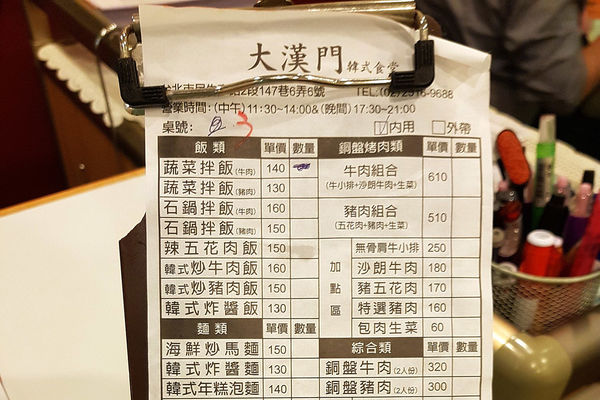 大漢門 韓式食堂
2段147巷6弄6號 TEL:(02)2518-9688
營業時間:(中午)11:30~14:00&(晚間)17:30~21:00
桌號: 3 ☑內用 □外帶
飯類 單價 數量
蔬菜拌飯(牛肉) 140
蔬菜拌飯(豬肉) 130
石鍋拌飯(牛肉) 160
石鍋拌飯(豬肉) 150
辣五花肉飯 150
韓式炒牛肉飯 160
韓式炒豬肉飯 150
韓式炸醬飯 130
麵類 單價 數量
海鮮炒馬麵 150
韓式炸醬麵 130
韓式年糕泡麵 140
銅盤烤肉類 單價 數量
牛肉組合 610
(牛小排+沙朗牛肉+生菜)
豬肉組合 510
(五花肉+豬肉+生菜)
加點區
無骨肩牛小排 250
沙朗牛肉 180
豬五花肉 170
特選豬肉 160
包肉生菜 60
綜合類 單價 數量
銅盤牛肉(2人份) 320
銅盤豬肉(2人份) 300